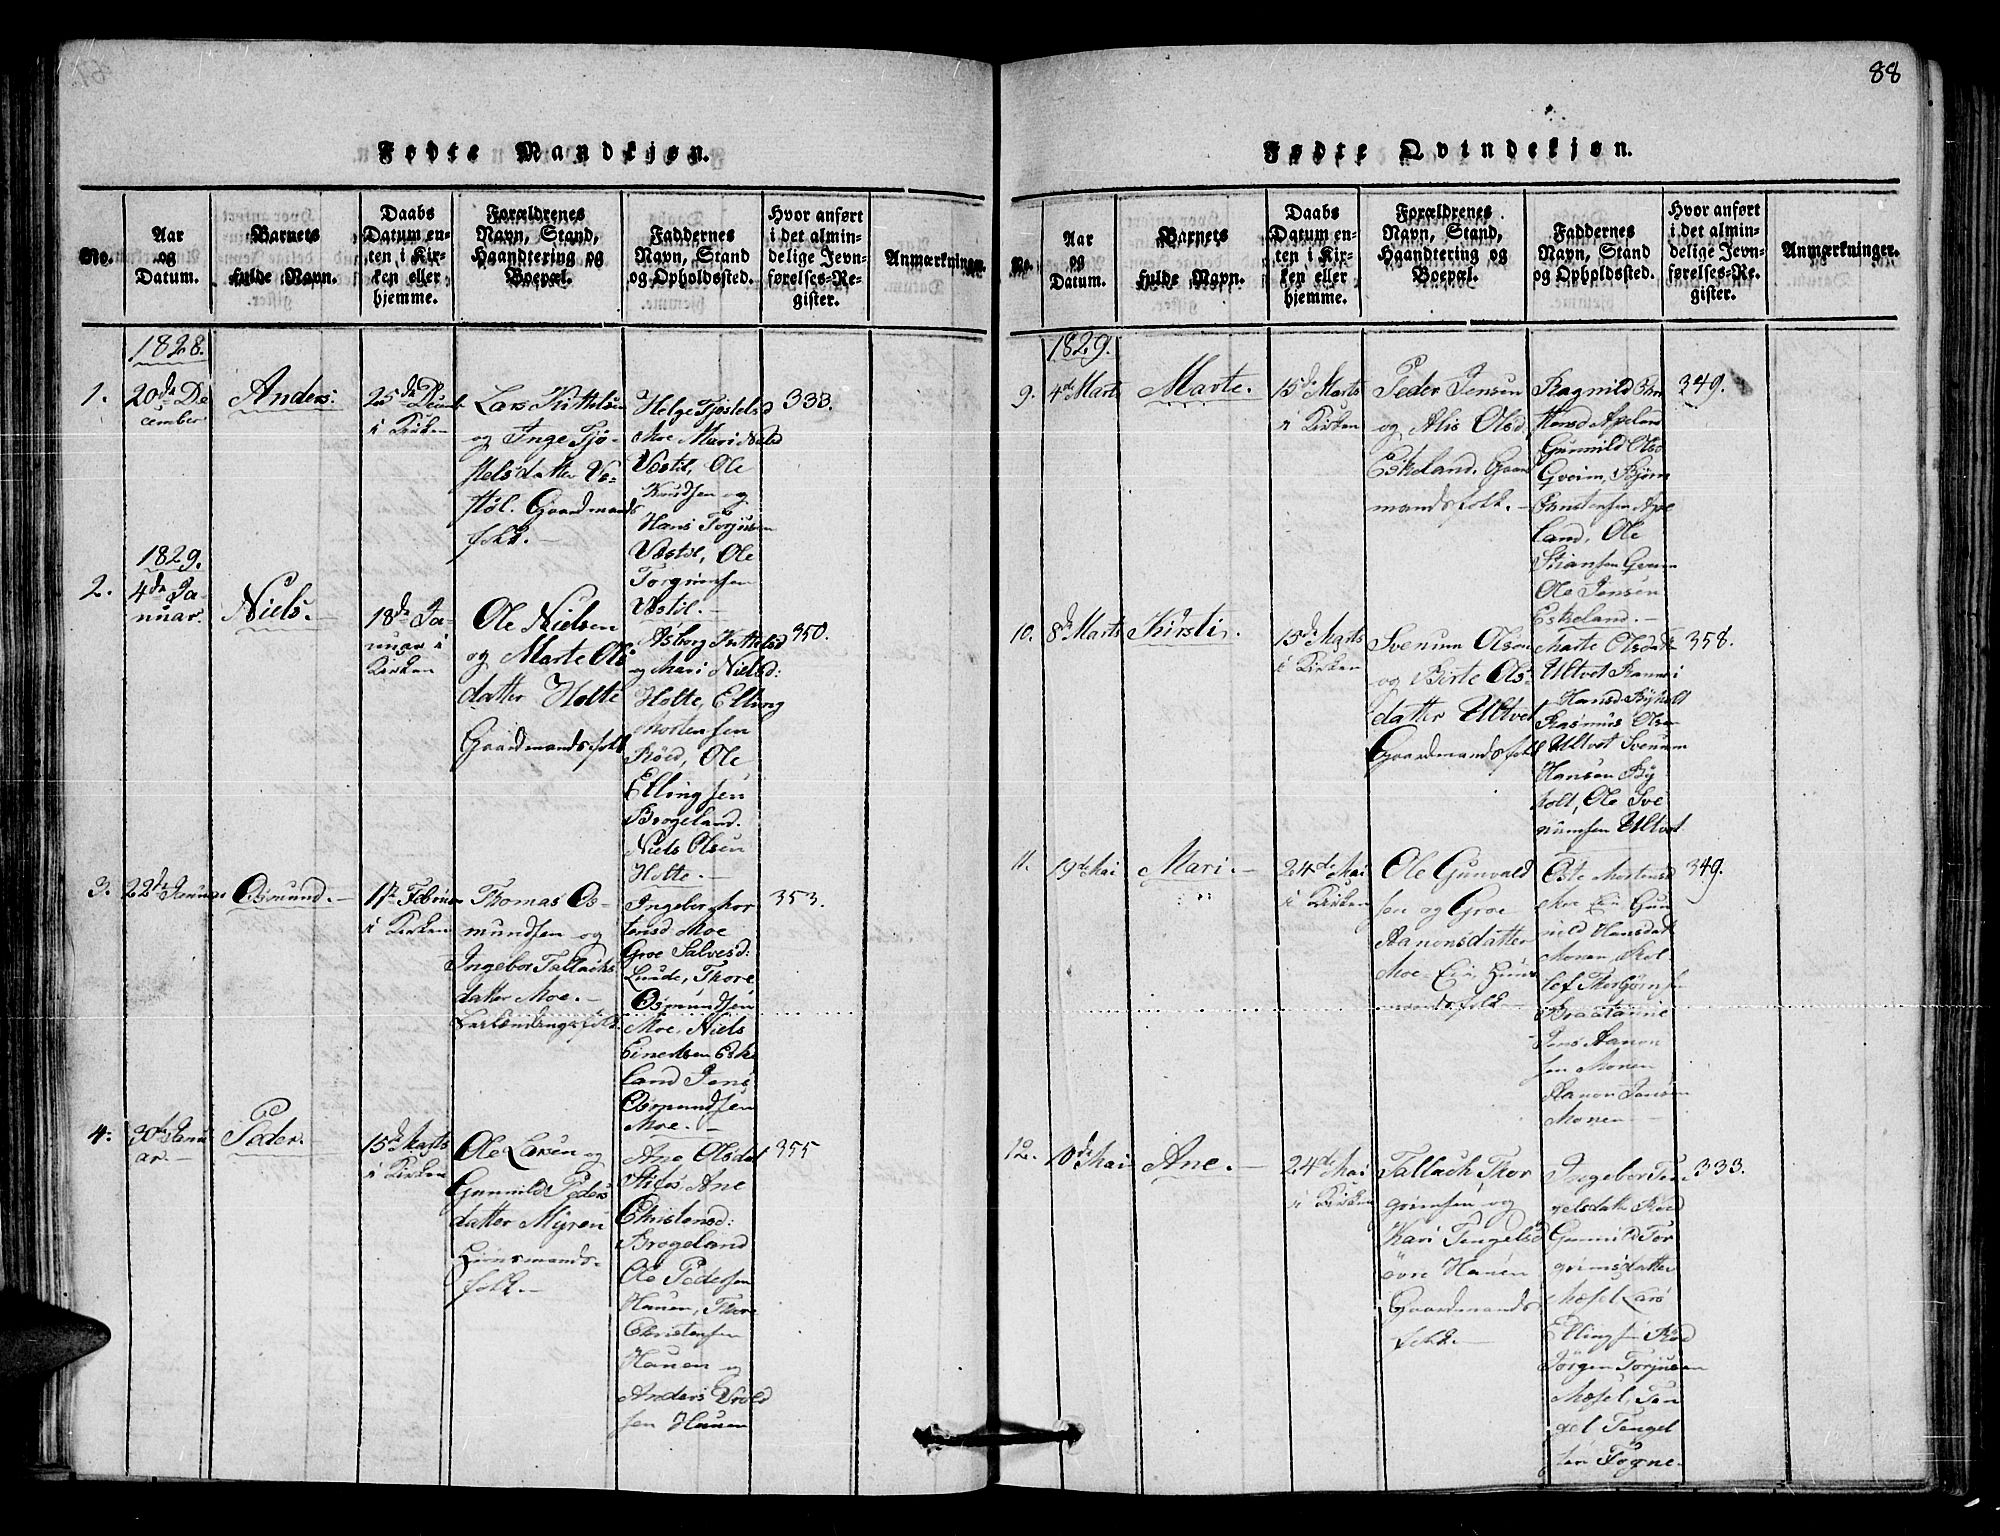 88
Fødte Mandkjøn.
No.
Aar
og
Datum.
Barnets
fulde Navn.
Daabs
Datum en-
ten i Kir-
ken eller
hjemme.
Forældrenes
Navn, Stand,
Haandtering og
Boepæl.
Faddernes
Navn, Stand
og Opholdssted.
Hvor anført
i det almin-
delige Jevn-
førelses-Re-
gister.
Anmærkninger.
1828.
1.
20de De
cember
Anders.
25de Decemb
i Kirken
Lars Kittelsen
og Inge Tjø-
stelsdatter Ve-
støl. Gaardmands
folk.
Helge Tjostelsd
Moe Mari Nielsd
Vestøl, Ole
Knudsen og
Hans Torjusen
Vestøl, Ole
Torgrimsen
Vestøl.
333.
1829.
2.
4de Ja-
nuar.
Niels.
18de Ja-
nuar i
Kirken
Ole Nielsen
og Marte Ols
datter Holte
Gaardmandsfolk
Asborg Kittelsd
og Mari Nielsd:
Holte, Elling
Mortensen
Röed, Ole
Ellingsen
Brogeland.
Niels Olsen
Holte.
350.
3.
22de Januar
Osmund.
1te Februar
i Kirken
Thomas Os-
mundsen og
Ingebor Tallachs
datter Moe.
Ingeborg Mor
tensd Moe
Groe Salvesd:
Lunde, Thore
Osmundsen
Moe, Niels
Einersen Eske
land Jens
Osmundsen
Moe.
353.
4.
30te Janu
ar.
Peder.
15de Marts
i Kirken
Ole Larsen og
Gunnild Peders
datter Myren
Huusmands-
folk.
Ane Olsdat
Stifos, Ane
Christensd:
Brogeland
Ole Pedersen
Hauen, Thore
Christensen
Hauen og
Anders Wrold
sen Hauen
355
Fødte Qvindekjøn.
No.
Aar
og
Datum.
Barnets
fulde Navn.
Daabs
Datum en-
ten i Kir-
ken eller
hjemme.
Forældrenes
Navn, Stand,
Haandtering og
Boepæl.
Faddernes
Navn, Stand
og Opholdssted.
Hvor anført
i det almin-
delige Jevn-
førelses-Re-
gister.
Anmærkninger.
1829.
9.
4de Marts
Marte.
15de Marts
i Kirken
Peder Jensen
og Alis Olsd,
Eskeland. Gaard
mandsfolk.
Ragnild
Apeland
Gunnild Olsd
Gveim, Bjørn
Apе
land, Ole
Stiansen Gveim
Ole Jensen
Eskeland.
349.
10.
8de Marts
Kirsti.
15de Marts
i Kirken
Svenum Olsen
og Birte Ols-
datter Ultvet
Gaardmandsfolk
Marte Olsdatter
Ultvet
Hansd Byholt
Rasmus Olsen
Ultvet Svenum
Hansen By
holt, Ole Sve
numsen Ultvet
358.
11.
19de Mai
Mari.
24de Mai
i Kirken
Ole Gunvald
sen og Groe
Aanonsdatter
Moe. Eie, Huus
mandsfolk
Mortensd
Moe Eie Gun
nild Hansdat
Monen, Rol
lef Thorbjørnsen
Jens Aanon
sen Monen
Aanon Jensen
Monen
349.
12.
10de Mai
Ane.
24de Mai
i Kirken
Tallach Thor
grimsen og
Kari Tengelsd
övre Hauen
Gaardmands
folk.
Ingebor Ten
gelsdatter Röed
Gunnild Tor
grimsdatter
Mæsel Lars
Ellingsen Röd
Jörgen Torjusen
Mæsel, Ten
gel Tengel
sen Fogne.
333.